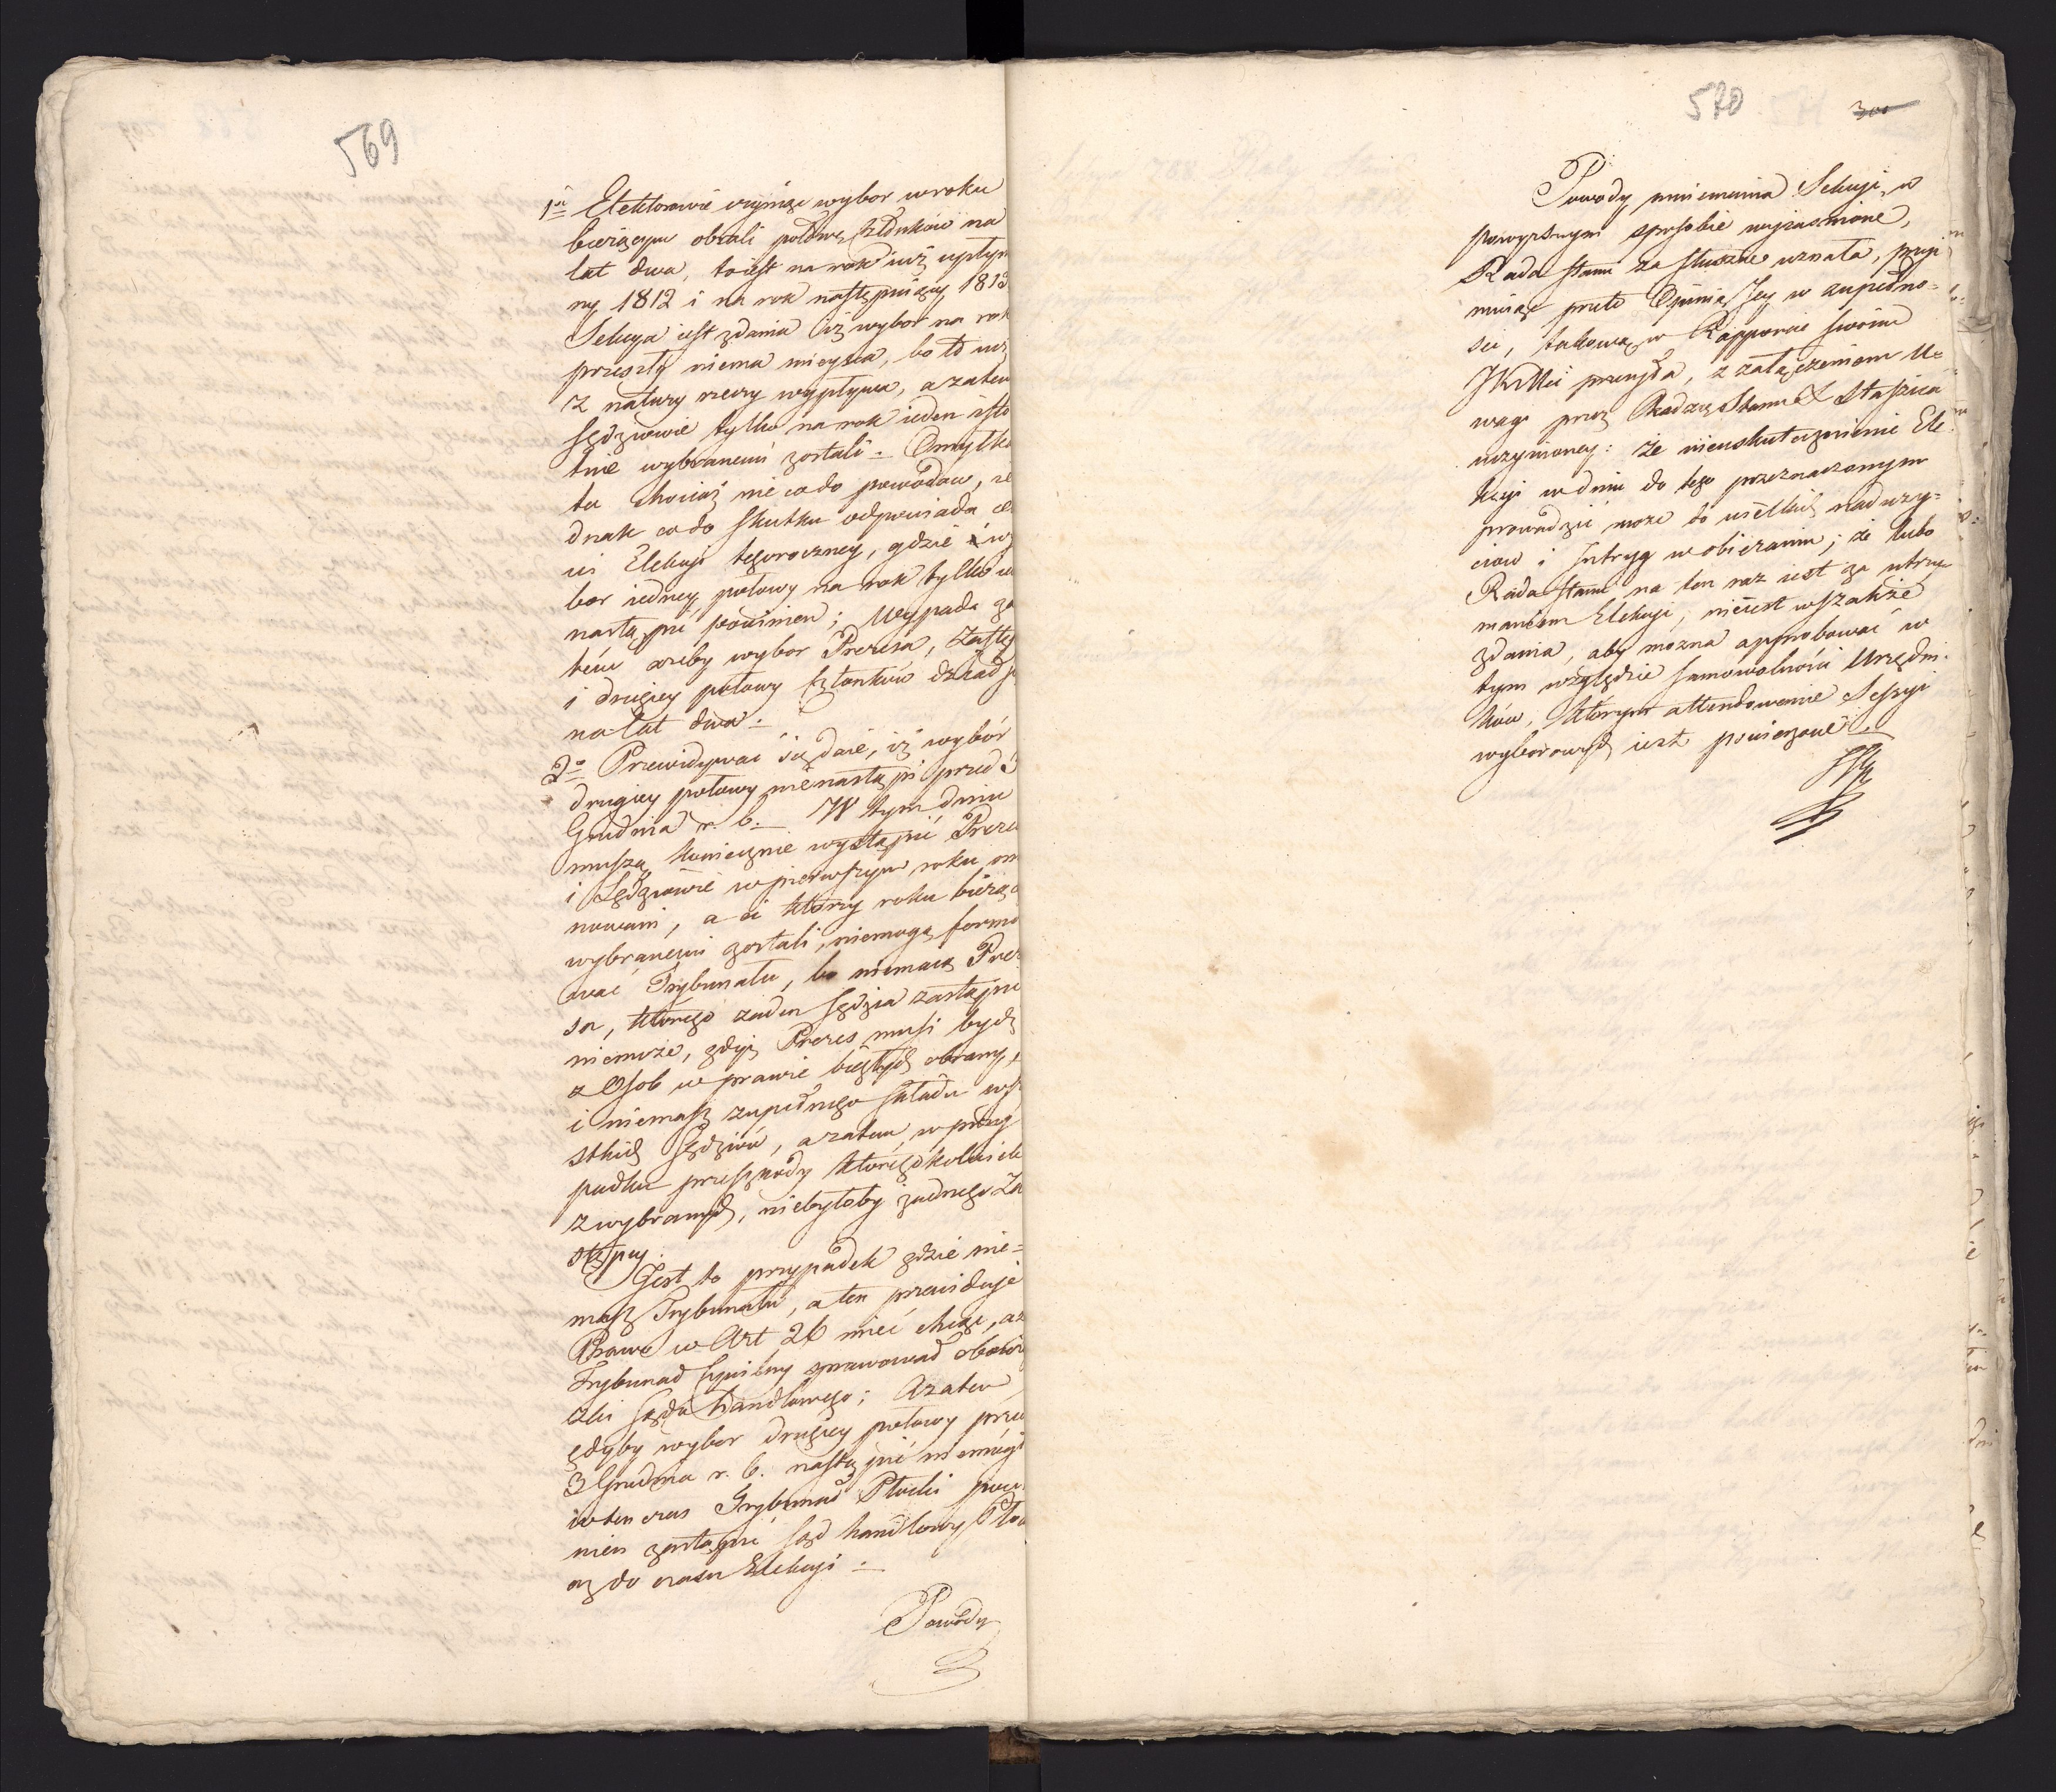 569
1º Elektorowie czyniąc wybor w roku
bieżącym obrali połowę Członków na
lat dwa, to iest na rok iuż upłyn
ny 1812 i na rok następuiący 1813
Sekcya iest zdania iż wybor na rok
przeszły niema mieysca, bo to iuż
z natury rzeczy wypływa, a zatem
Sędziowie tylko na rok ieden isto
tnie wybranemi zostali. Omyłka
ta chociaż nie co do powodów, ie
dnak co do skutku odpowiada ce
Elekcyi tegoroczney, gdzie wy
bor iedney połowy na rok tylko ie
nastąpić powinien; Wypada za
tem ażeby wybor Prezesa, Zastę
i drugiey połowy Członków działa
na lat dwa.
2º Przewidywać się daie, iż wybór
drugiey połowy nienastąpi przed 3
Grudnia r. b. W tym dniu
muszą koniecznie wystąpić Preze
i Sędziowie w pierwszym roku mi
nowani, a ci ktorzy roku bieżąc
wybranemi zostali, niemogą formo
wać Trybunału, bo niemaią Preze
sa, którego żaden Sędzia zastąpić
niemoże, gdyż Prezes musi bydź
z Osob w prawie biegłych obrany,
i niemasz zupełnego składu wsz
stkich Sędziów, a zatem w przy
padku przeszkody któregokolwiek
z wybranych, niebyłoby żadnego Za
stępcy.
Jest to przypadek gdzie nie=
masz Trybunału, a ten przewiduje
Prawo w Art 26 mieć chcąc, aż
Trybunał Cywilny sprawował obowią
zki Sądu Handlowego; Azatem
gdyby wybor drugiey połowy przed
3 Grudnia r. b. nastąpić niemógł
wtenczas Trybunał Płocki powi
nien zastąpić Sąd handlowy Płoc
aż do czasu Elekcyi
Powody
570
300
Powody mniemania Sekcyi, w
powyższym sposobie wyjaśnione,
Rada Stanu za słuszne uznała, przyi
muiąc przeto Opinię Jey w zupełno=
ści, takową w Rapporcie swoim
JKrMci przesyła, z załączeniem u=
wagi przez Radzcę Stanu X Staszica
uczynioney: że nieuskutecznienie Ele
kcyi w dniu do tego przeznaczonym
prowadzić może do wielkich naduży=
ciow i Intryg w obieraniu; że lubo
Rada Stanu na ten raz iest za utrzy
maniem Elekcyi, nieiest wszakże
zdania, aby można approbować w
tym względzie samowolność Urzędni=
ków, którym attendowanie Sessyi
wyborowych iest powierzone.